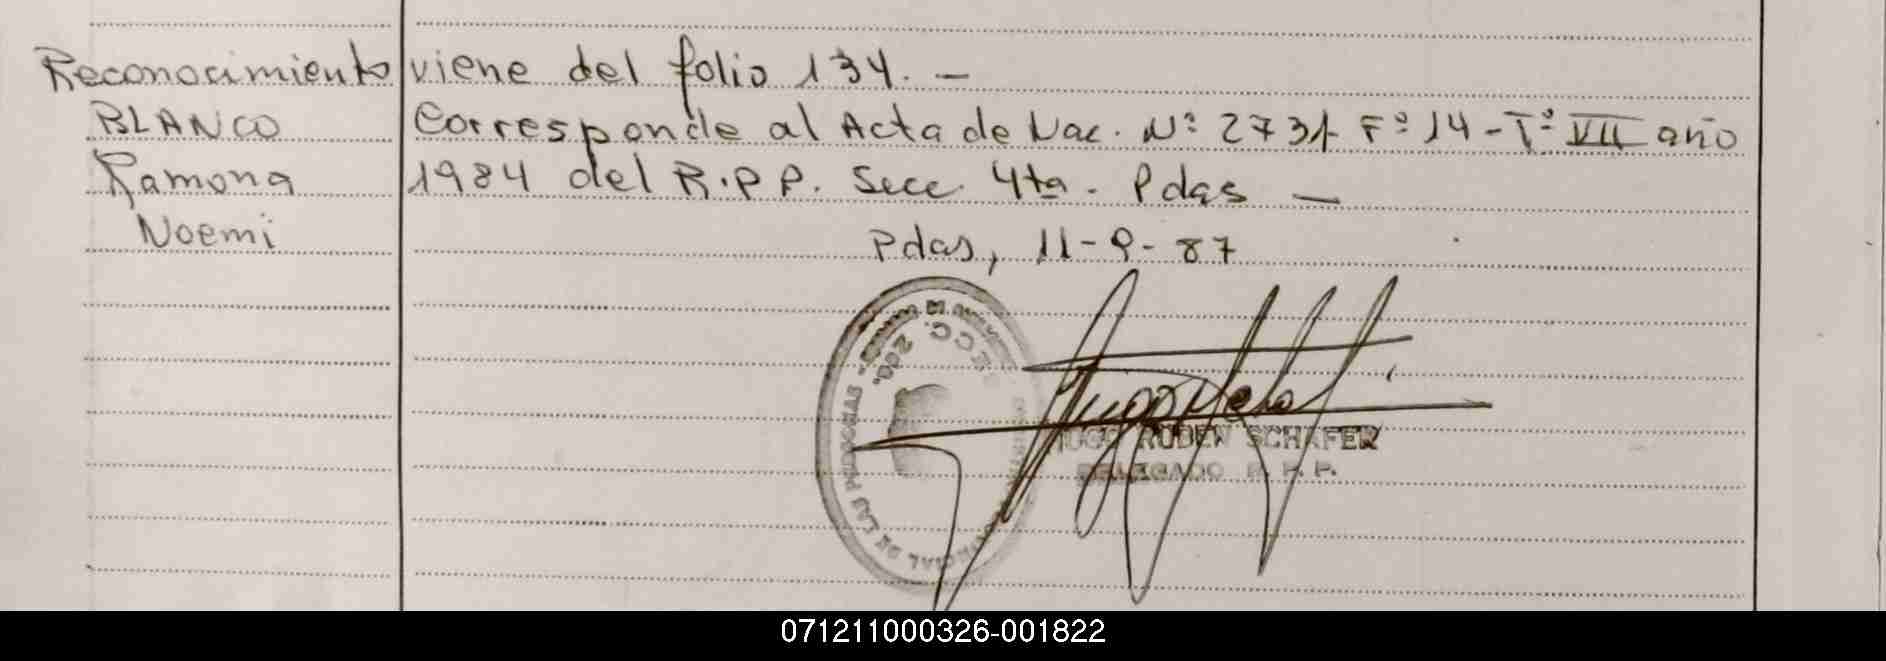 Reconocimiento viene del folio 134. —
BLANCO Corresponde al Acta de Nac. Nº 2731 Fº 14 - Tº VII año
Ramona 1984 del R.P.P. Secc. 4ta. Pdas —
Noemi
Pdas, 11-9-87
SECC. 2da.
DE LAS PERSONAS
HUGO RUBEN SCHAFER
DELEGADO R. P. P.
071211000326-001822